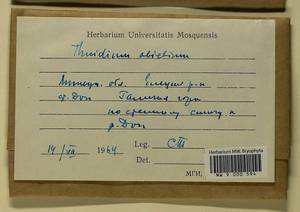 Herbarium Universitatis Mosquensis
Thuidium abietinum
Липецк. обл. Елецкий р-н
р. Дон Галичья гора
по склону к
р. Дон
14/VII 1964 Leg.
Det.
МГИ,
Herbarium MW, Bryophyta
MW 9 000 594